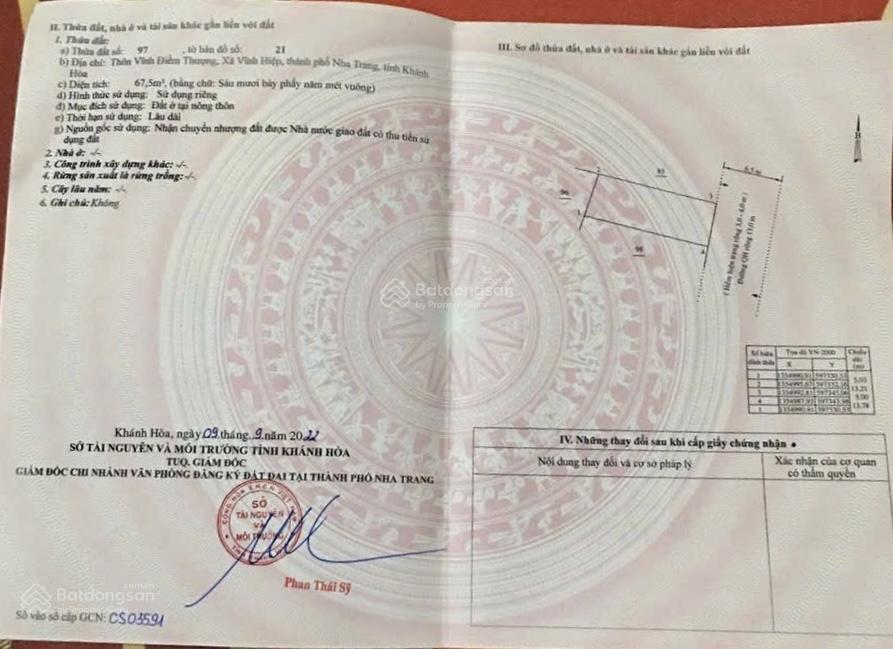 II. Thửa đất, nhà ở và tài sản khác gắn liền với đất
1. Thửa đất:
a) Thửa đất số: 97 , tờ bản đồ số: 21
b) Địa chỉ: Thôn Vĩnh Điềm Thượng, Xã Vĩnh Hiệp, thành phố Nha Trang, tỉnh Khánh
Hòa
c) Diện tích: 67,5m², (bằng chữ: Sáu mươi bảy phẩy năm mét vuông)
d) Hình thức sử dụng: Sử dụng riêng
đ) Mục đích sử dụng: Đất ở tại nông thôn
e) Thời hạn sử dụng: Lâu dài
g) Nguồn gốc sử dụng: Nhận chuyển nhượng đất được Nhà nước giao đất có thu tiền sử
dụng đất
2. Nhà ở: -/-
3. Công trình xây dựng khác: -/-
4. Rừng sản xuất là rừng trồng: -/-
5. Cây lâu năm: -/-
6. Ghi chú: Không
Khánh Hòa, ngày 09 tháng 9 năm 2022
SỞ TÀI NGUYÊN VÀ MÔI TRƯỜNG TỈNH KHÁNH HÒA
TUQ. GIÁM ĐỐC
GIÁM ĐỐC CHI NHÁNH VĂN PHÒNG ĐĂNG KÝ ĐẤT ĐAI TẠI THÀNH PHỐ NHA TRANG
SỞ
TÀI NGUYÊN
VÀ
MÔI TRƯỜNG
Phan Thái Sỹ
Số vào sổ cấp GCN: CS03591
III. Sơ đồ thửa đất, nhà ở và tài sản khác gắn liền với đất
B
6,5 m
2
96
1
3
98
4
( Hẻm hiện trạng rộng 3,0 - 4,0 m )
Đường QH rộng 13,0 m
Số hiệu đỉnh thửa
Tọa độ VN-2000
Chiều dài (m)
X Y
1
2
3
4
1
5,03
13,21
5,00
13,78
IV. Những thay đổi sau khi cấp giấy chứng nhận
Nội dung thay đổi và cơ sở pháp lý
Xác nhận của cơ quan
có thẩm quyền
Batdongsan
by PropertyGuru
Batdongsan
.com.vn
by PropertyGuru